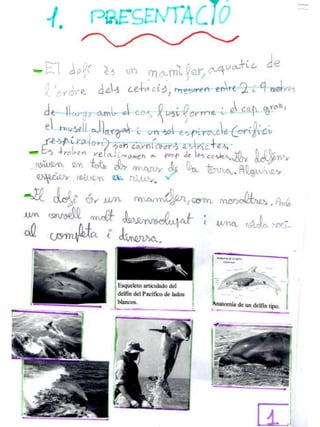 1. PRESENTACIÓ
- El dofí és un mamífer, aquatic de
l'ordre dels cetacis, mesuren entre 2 i 9 metres
de llarg amb el cos fusiforme i el cap gran,
el musell allargat i un sol espiracle (orifici
respiratori) són carnívors estrictes.
- Es troben relativament a prop de les costes. Els dofins
viuen en tots els mars de la terra. Algunes
espècies viuen en rius.
- El dofí és un mamífer, com nosaltres. Amb
un cervell molt desenvolupat i una vida soci-
al completa i diversa.
Esqueleto articulado del
delfín del Pacífico de lados
blancos.
Anatomía de un delfín tipo.
1